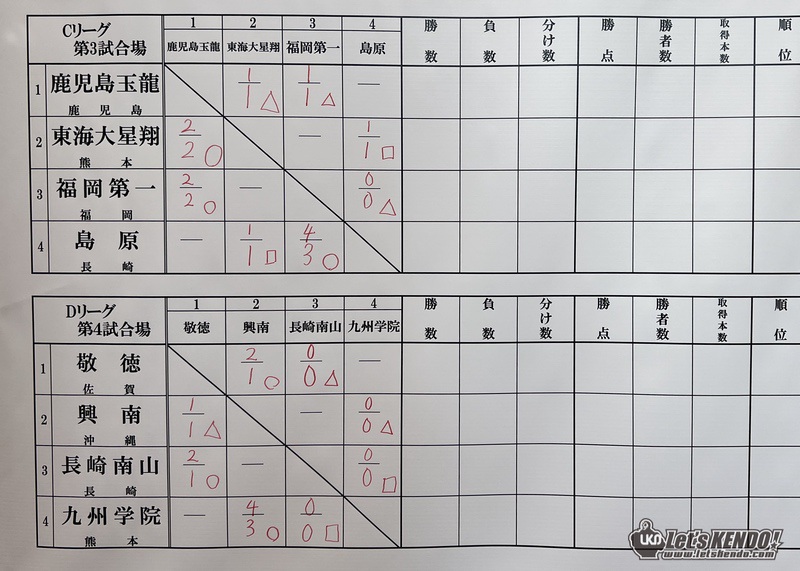 Cリーグ 第3試合場 1 2 3 4 勝数 負数 分け数 勝点 勝者数 取得本数 順位
鹿児島玉龍 東海大星翔 福岡第一 島原
1 鹿児島玉龍 1/1△ 1/1△ —
鹿児島
2 東海大星翔 2/2○ — 1/1□
熊本
3 福岡第一 2/2○ — 0/0△
福岡
4 島原 — 1/1□ 4/3○
長崎
Dリーグ 第4試合場 1 2 3 4 勝数 負数 分け数 勝点 勝者数 取得本数 順位
敬徳 興南 長崎南山 九州学院
1 敬徳 2/1○ 0/0△ —
佐賀
2 興南 1/1△ — 0/0△
沖縄
3 長崎南山 2/1○ — 0/0□
長崎
4 九州学院 — 4/3○ 0/0□
熊本
LKn Let's KENDO!
www.letskendo.com